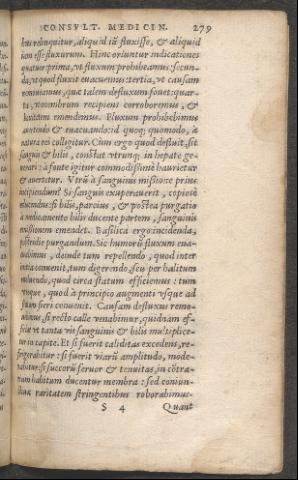 CONSVLT. MEDICIN. 279
bus relinquitur, aliquid iã fluxisse, & aliquid
iam esse fluxurum. Hinc oriuntur indicationes
quatuor prima, vt fluxum prohibeamus: secun-
da, vt quod fluxit euacuemus: tertia, vt causam
remoueamus, quæ talem defluxum fouet: quar-
ta, vt membrum recipiens corroboremus, &
læsitatem emendemus. Fluxum prohibebimus
auertendo & euacuando: id quoq; quomodo, à
natura rei colligitur. Cùm ergo quod defluit, sit
sanguis & bilis, constat vtrunq; in hepate ge-
nerari: à fonte igitur commodissimè haurietur
& auertetur. Vtrũ à sanguinis missione prius
incipiendum? Si sanguis exuperauerit, copiosè
educendus: si bilis, parcius, & postea purgatio
à medicamento bilis ducente partem, sanguinis
missionem emendet. Basilica ergo incidenda,
postridie purgandum. Sic humorũ fluxum eua-
dabimus, deinde tum repellendo, quod inter
initia conuenit, tum digerendo, seu per halitum
mouendo, quod circa statum efficiemus: tum
vtroque, quod à principio augmenti vsque ad
statum fieri conuenit. Causam defluxus remo-
uebimus, si rectò calle venabimur, quidnam ef-
ficiat vt tanta vis sanguinis & bilis multiplice-
tur in capite. Et si fuerit caliditas excedens, re-
frigerabitur: si fuerit viarũ amplitudo, mode-
rabitur: si succorũ feruor & tenuitas, in cõtra-
rium habitum ducentur membra: sed coniun-
raritatem stringentibus roborabimus.
S 4 Quant